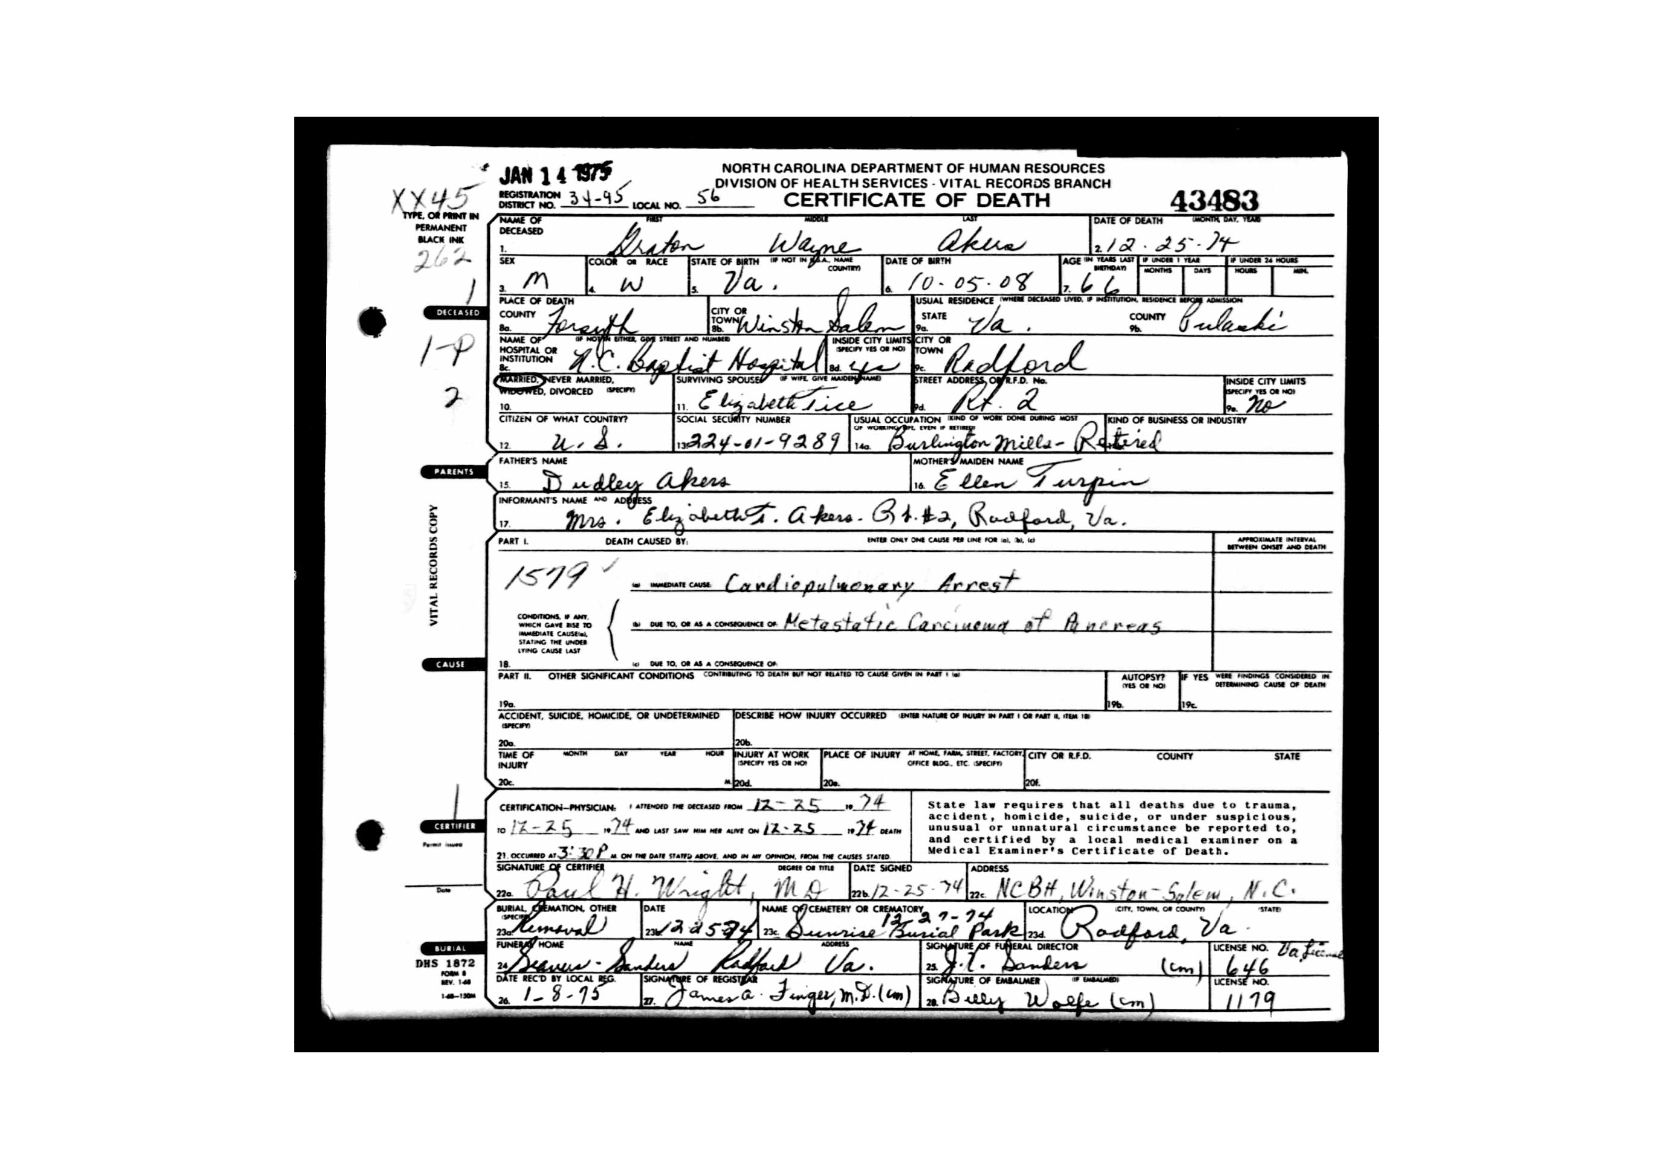 JAN 14 1975
NORTH CAROLINA DEPARTMENT OF HUMAN RESOURCES
DIVISION OF HEALTH SERVICES - VITAL RECORDS BRANCH
XX45
REGISTRATION DISTRICT NO. 34-95 LOCAL NO. 56 CERTIFICATE OF DEATH 43483
TYPE, OR PRINT IN PERMANENT BLACK INK
262
1
NAME OF DECEASED FIRST MIDDLE LAST DATE OF DEATH (MONTH, DAY, YEAR)
1. Draton Wayne Akers 2. 12-25-74
SEX COLOR OR RACE STATE OF BIRTH (IF NOT IN U.S.A., NAME COUNTRY) DATE OF BIRTH AGE (IN YEARS LAST BIRTHDAY) IF UNDER 1 YEAR MONTHS DAYS IF UNDER 24 HOURS HOURS MIN.
3. M 4. W 5. Va. 6. 10-05-08 7. 66
DECEASED
PLACE OF DEATH USUAL RESIDENCE (WHERE DECEASED LIVED, IF INSTITUTION, RESIDENCE BEFORE ADMISSION)
COUNTY CITY OR TOWN STATE COUNTY
8a. Forsyth 8b. Winston Salem 9a. Va. 9b. Pulaski
1-P
2
NAME OF HOSPITAL OR INSTITUTION (IF NOT IN EITHER, GIVE STREET AND NUMBER) INSIDE CITY LIMITS (SPECIFY YES OR NO) CITY OR TOWN
8c. N.C. Baptist Hospital 8d. yes 9c. Radford
MARRIED, NEVER MARRIED, WIDOWED, DIVORCED (SPECIFY) SURVIVING SPOUSE (IF WIFE, GIVE MAIDEN NAME) STREET ADDRESS, OR R.F.D. No. INSIDE CITY LIMITS (SPECIFY YES OR NO)
10. 11. Elizabeth Tice 9d. Rt. 2 9e. No
CITIZEN OF WHAT COUNTRY? SOCIAL SECURITY NUMBER USUAL OCCUPATION (KIND OF WORK DONE DURING MOST OF WORKING LIFE, EVEN IF RETIRED) KIND OF BUSINESS OR INDUSTRY
12. U.S. 13. 224-01-9289 14a. Burlington Mills - Retired
PARENTS
FATHER'S NAME MOTHER'S MAIDEN NAME
15. Dudley Akers 16. Ellen Turpin
INFORMANT'S NAME AND ADDRESS
17. Mrs. Elizabeth T. Akers - Rt. #2, Radford, Va.
VITAL RECORDS COPY
PART I. DEATH CAUSED BY: ENTER ONLY ONE CAUSE PER LINE FOR (a), (b), (c) APPROXIMATE INTERVAL BETWEEN ONSET AND DEATH
1579 ✓ (a) IMMEDIATE CAUSE: Cardiopulmonary Arrest
CONDITIONS, IF ANY, WHICH GAVE RISE TO IMMEDIATE CAUSE(a), STATING THE UNDER LYING CAUSE LAST
(b) DUE TO, OR AS A CONSEQUENCE OF: Metastatic Carcinoma of Pancreas
CAUSE
18. (c) DUE TO, OR AS A CONSEQUENCE OF:
PART II. OTHER SIGNIFICANT CONDITIONS CONTRIBUTING TO DEATH BUT NOT RELATED TO CAUSE GIVEN IN PART I (a) AUTOPSY? (YES OR NO) IF YES WERE FINDINGS CONSIDERED IN DETERMINING CAUSE OF DEATH
19a. 19b. 19c.
ACCIDENT, SUICIDE, HOMICIDE, OR UNDETERMINED (SPECIFY) DESCRIBE HOW INJURY OCCURRED (ENTER NATURE OF INJURY IN PART I OR PART II, ITEM 18)
20a. 20b.
TIME OF INJURY MONTH DAY YEAR HOUR INJURY AT WORK (SPECIFY YES OR NO) PLACE OF INJURY AT HOME, FARM, STREET, FACTORY, OFFICE BLDG., ETC. (SPECIFY) CITY OR R.F.D. COUNTY STATE
20c. M. 20d. 20e. 20f.
1
CERTIFICATION-PHYSICIAN: I ATTENDED THE DECEASED FROM 12-25 19 74
TO 12-25 19 74 AND LAST SAW HIM HER ALIVE ON 12-25 19 74 DEATH
21. OCCURRED AT 3:30 P M. ON THE DATE STATED ABOVE, AND IN MY OPINION, FROM THE CAUSES STATED.
State law requires that all deaths due to trauma,
accident, homicide, suicide, or under suspicious,
unusual or unnatural circumstance be reported to,
and certified by a local medical examiner on a
Medical Examiner's Certificate of Death.
CERTIFIER
Permit issued
Date
SIGNATURE OF CERTIFIER DEGREE OR TITLE DATE SIGNED ADDRESS
22a. Paul H. Wright, MD 22b. 12-25-74 22c. NCBH, Winston-Salem, N.C.
BURIAL, CREMATION, OTHER (SPECIFY) DATE NAME OF CEMETERY OR CREMATORY LOCATION (CITY, TOWN, OR COUNTY) (STATE)
12-27-74
23a. Removal 23b. 122574 23c. Sunrise Burial Park 23d. Radford, Va.
BURIAL
FUNERAL HOME NAME ADDRESS SIGNATURE OF FUNERAL DIRECTOR LICENSE NO. Va
24. Seavers-Sanders Radford Va. 25. J.T. Sanders (cm) 646
DHS 1872
FORM 8
REV. 1-68
DATE REC'D BY LOCAL REG. SIGNATURE OF REGISTRAR SIGNATURE OF EMBALMER (IF EMBALMED) LICENSE NO.
26. 1-8-75 27. James A. Finger, M.D. (cm) 28. Billy Wolfe (cm) 1179